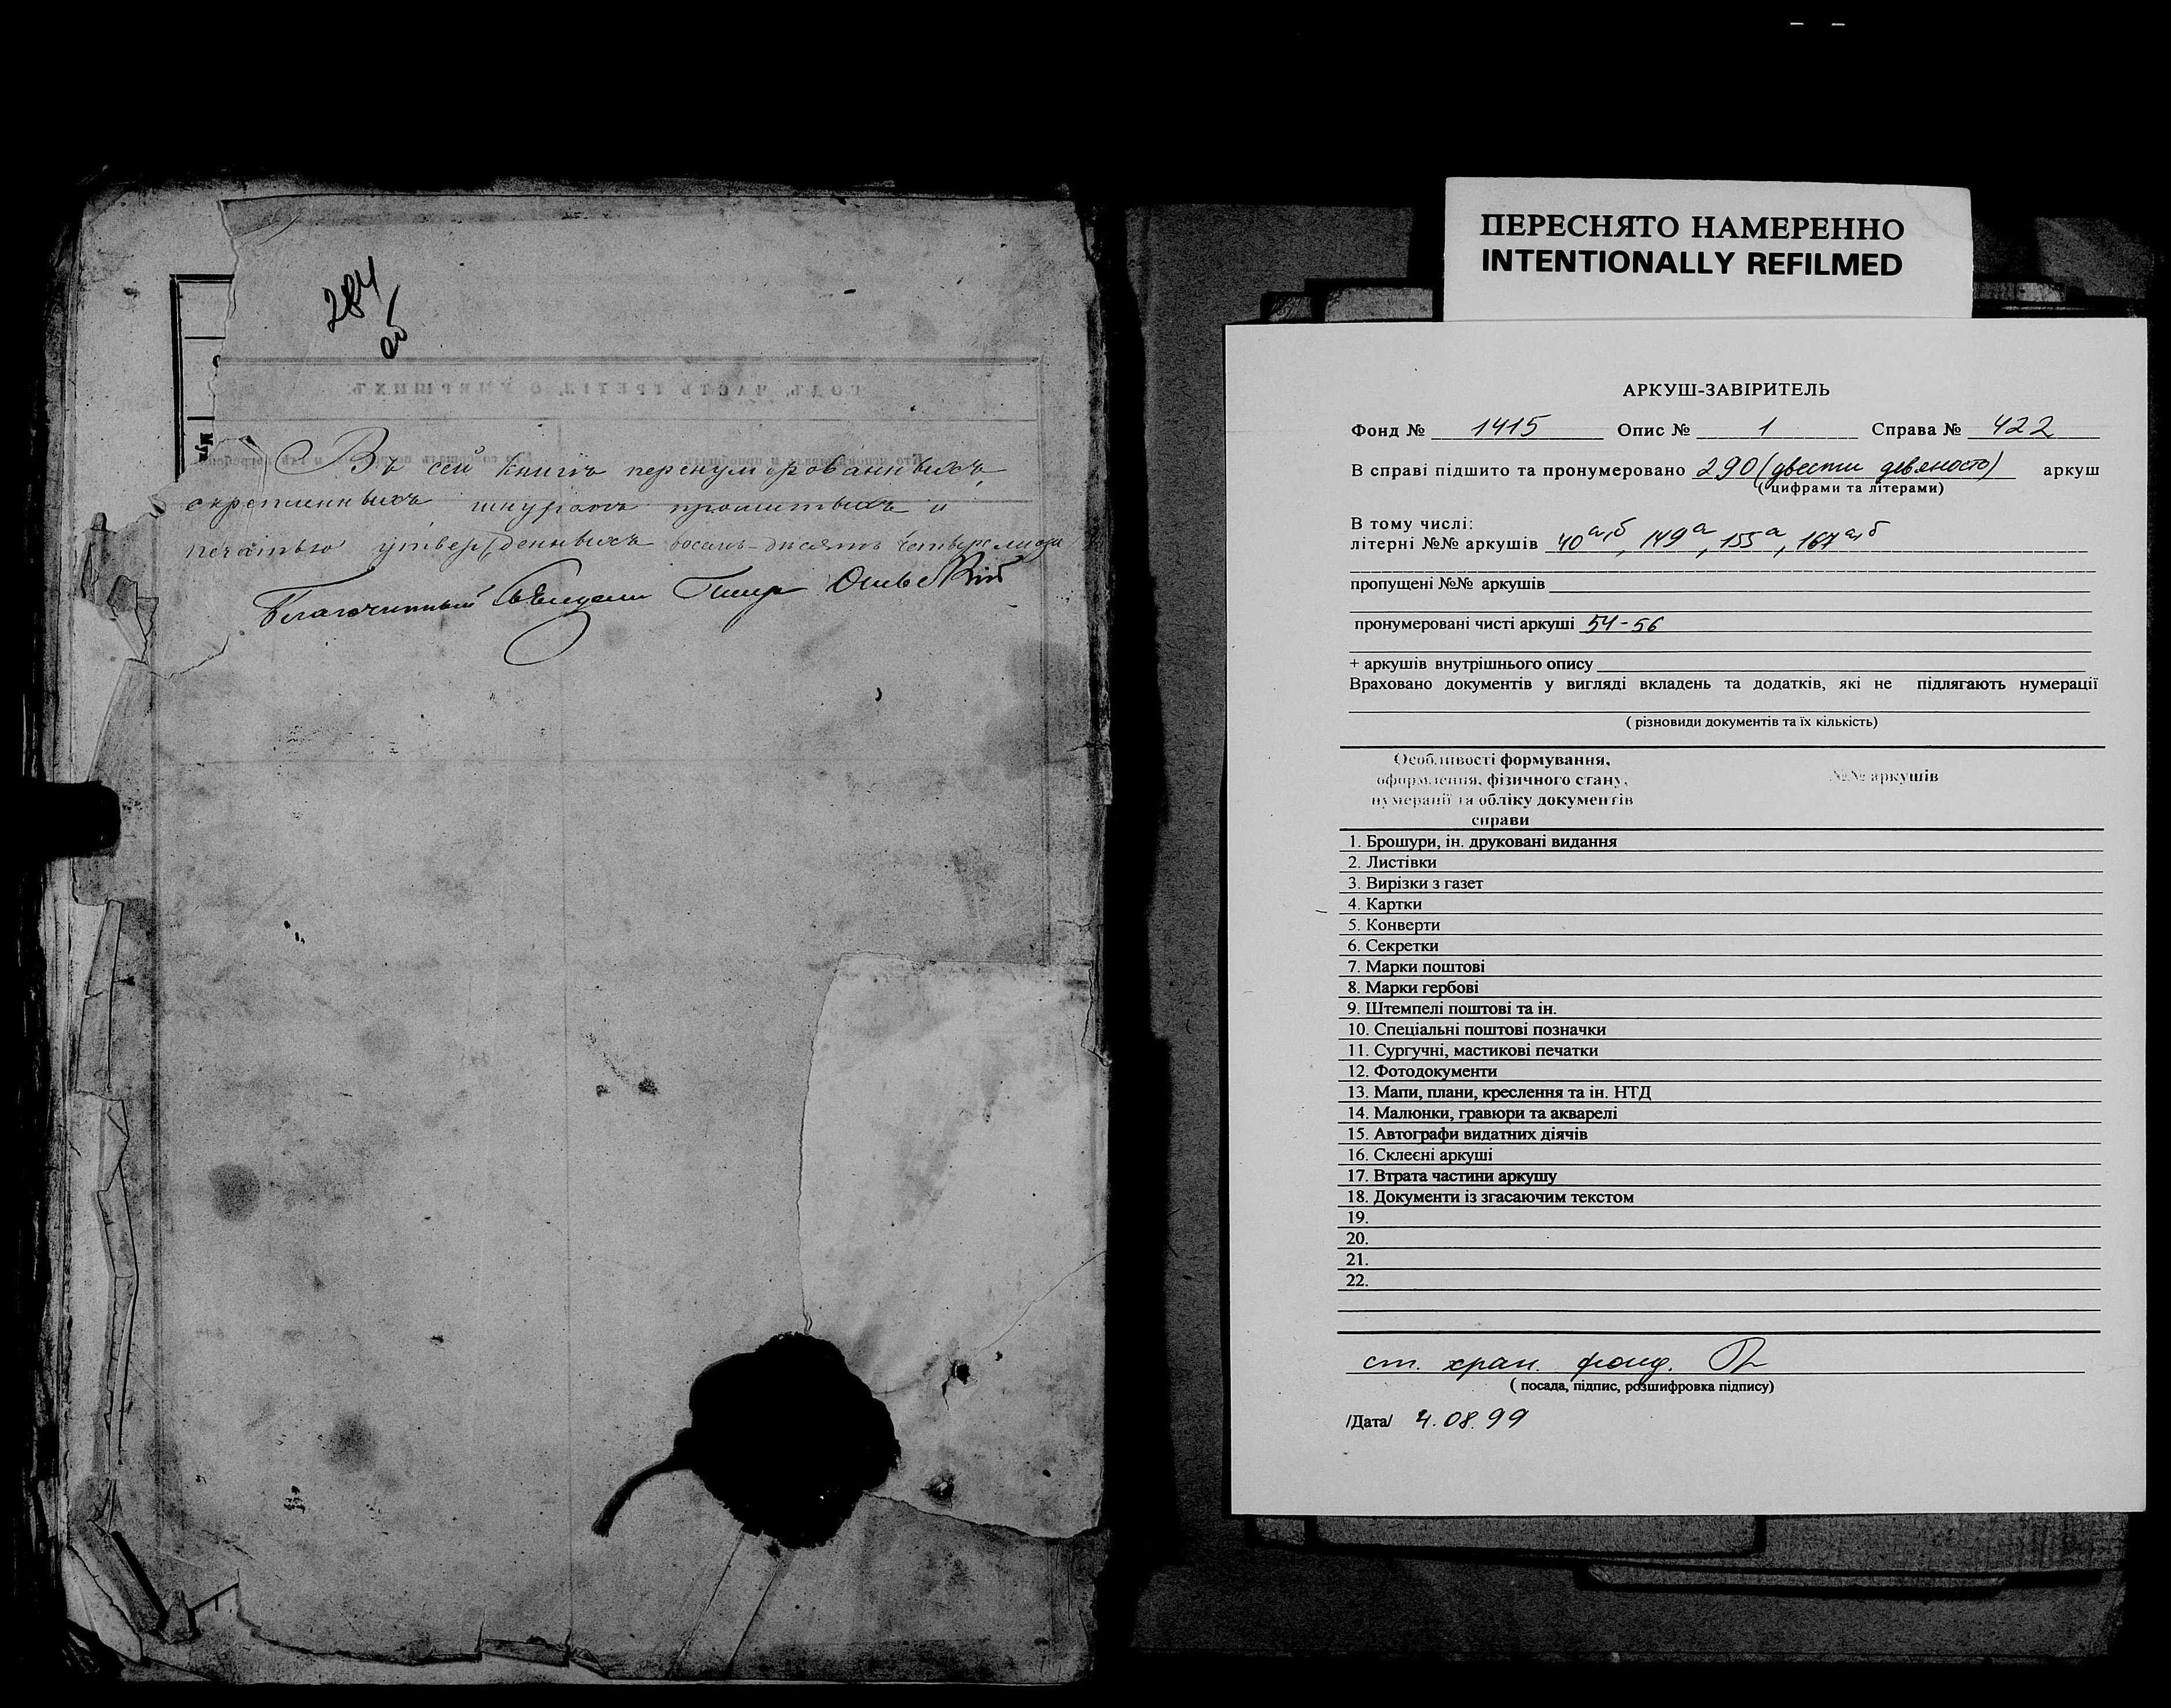 284
об
Въ сей книгѣ перенумерованныхъ,
скрепленныхъ шнуромъ прошитыхъ и
печатью утвержденныхъ восемь-десять четыре листа
Благочинный Священ Петр
ПЕРЕСНЯТО НАМЕРЕННО
INTENTIONALLY REFILMED
АРКУШ-ЗАВІРИТЕЛЬ
Фонд № 1415 Опис № 1 Справа № 422
В справі підшито та пронумеровано 290 (двести девяносто) аркуш
( цифрами та літерами)
В тому числі:
літерні №№ аркушів 40а,б, 149а, 155а, 167а,б
пропущені №№ аркушів
пронумеровані чисті аркуші 54-56
+ аркушів внутрішнього опису
Враховано документів у вигляді вкладень та додатків, які не підлягають нумерації
( різновиди документів та їх кількість)
Особливості формування,
оформлення, фізичного стану,
нумерації та обліку документів
справи
№№ аркушів
1. Брошури, ін. друковані видання
2. Листівки
3. Вирізки з газет
4. Картки
5. Конверти
6. Секретки
7. Марки поштові
8. Марки гербові
9. Штемпелі поштові та ін.
10. Спеціальні поштові позначки
11. Сургучні, мастикові печатки
12. Фотодокументи
13. Мапи, плани, креслення та ін. НТД
14. Малюнки, гравюри та акварелі
15. Автографи видатних діячів
16. Склеєні аркуші
17. Втрата частини аркушу
18. Документи із згасаючим текстом
19.
20.
21.
22.
ст. хран. фонд.
( посада, підпис, розшифровка підпису)
/Дата/ 4.08.99